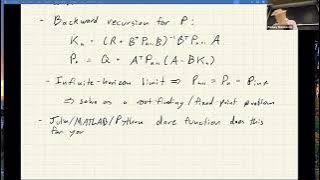 - Backward recursion for P:
Kₙ = (R + BᵀPₙ₊₁B)⁻¹BᵀPₙ₊₁A
Pₙ = Q + AᵀPₙ₊₁(A - BKₙ)
- Infinite-horizon limit ⇒ Pₙ₊₁ = Pₙ = Pinf
⇒ solve as a root finding/fixed point problem
- Julia/MATLAB/Python dare function does this
for you